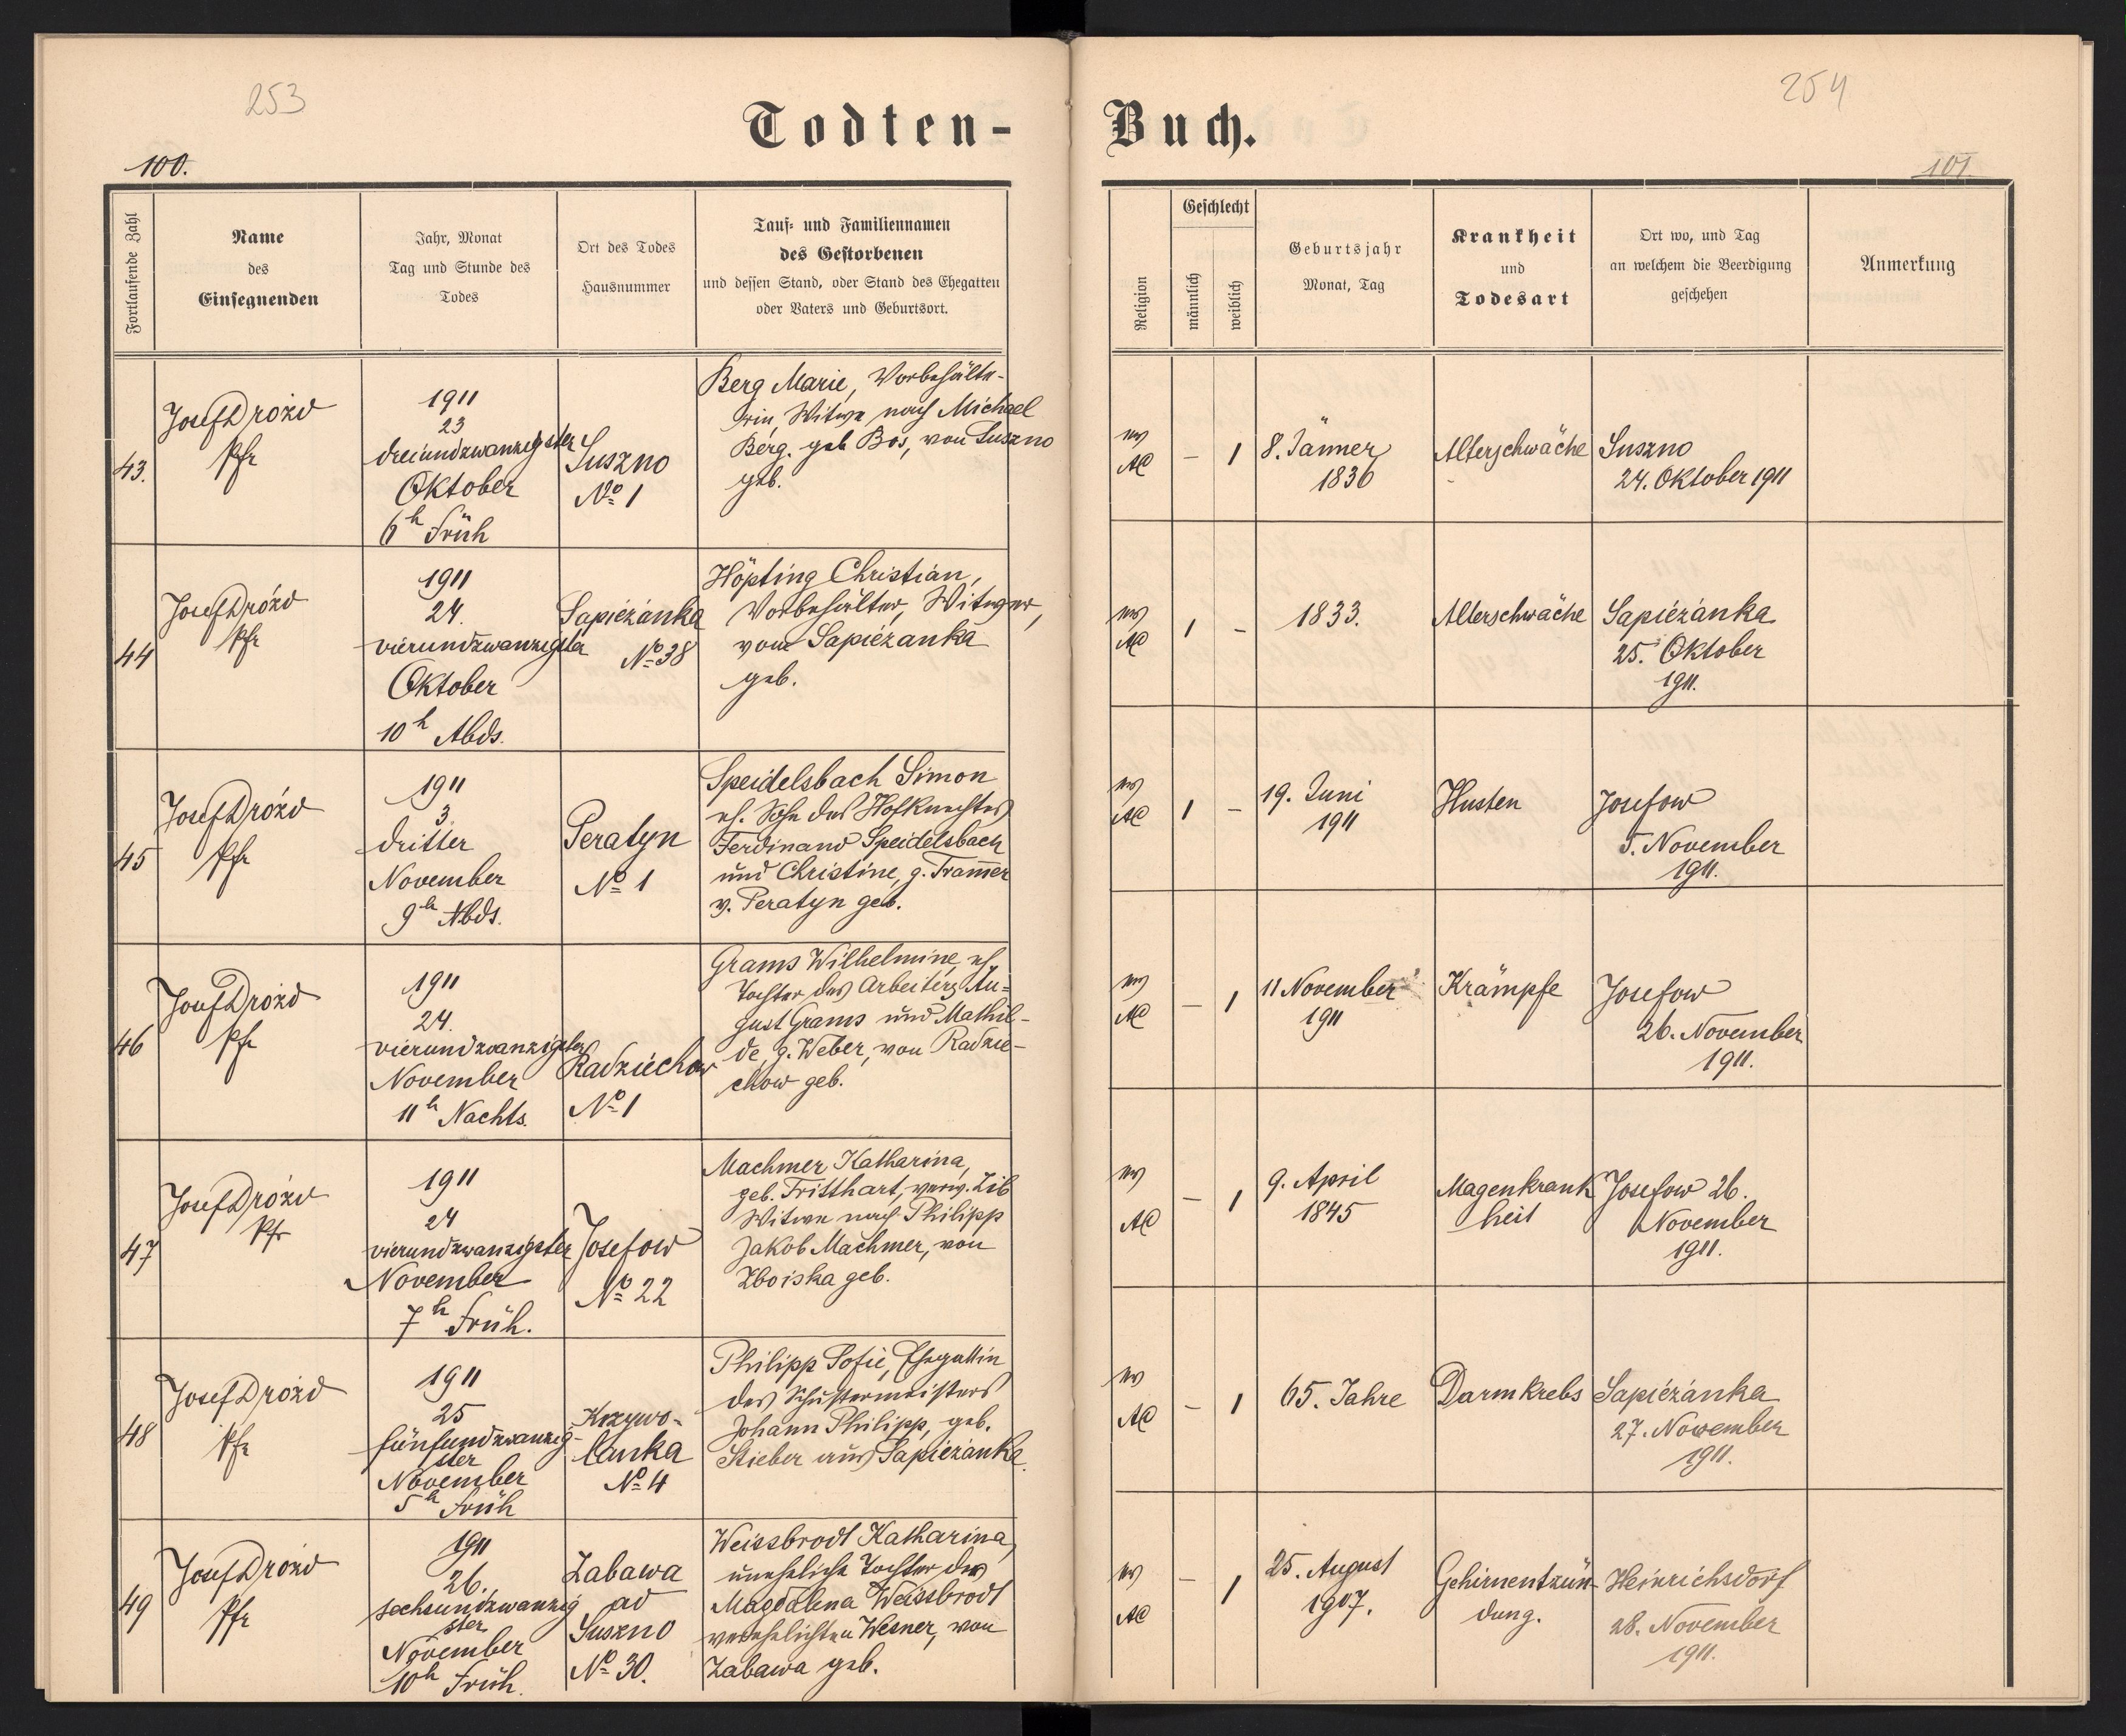 253
254
Todten-Buch.
100.
101.
Fortlaufende Zahl
Name
des
Einsegnenden
Jahr, Monat
Tag und Stunde des
Todes
Ort des Todes
Hausnummer
Tauf- und Familiennamen
des Gestorbenen
und dessen Stand, oder Stand des Ehegatten
oder Vaters und Geburtsort.
Religion
Geschlecht
männlich
weiblich
Geburtsjahr
Monat, Tag
Krankheit
und
Todesart
Ort wo, und Tag
an welchem die Beerdigung
geschehen
Anmerkung
43.
Josef Drożd
Pfr
1911
23
dreiundzwanzigster
Oktober
6h Früh
Suszno
No 1
Berg Marie, Vorbehälte-
rin, Witwe nach Michael
Berg. geb Bos, von Suszno
geb.
ev
AC
– 1
8. Jänner
1836
Alterschwäche
Suszno
24. Oktober 1911
44
Josef Drożd
Pfr
1911
24.
vierundzwanzigster
Oktober
10h Abds.
Sapieżanka
No 38
Höpting Christian,
Vorbehälter, Witwer,
von Sapieżanka
geb.
ev
AC
1 –
1833.
Alterschwäche
Sapieżanka
25. Oktober
1911.
45
Josef Drożd
Pfr
1911
3.
dritter
November
9h Abds.
Peratyn
No 1
Speidelsbach Simon
eh. Sohn des Hofknechtes
Ferdinand Speidelsbach
und Christine, g. Tram̄er
v. Peratyn geb.
ev
AC
1 –
19. Juni
1911
Husten
Josefow
5. November
1911.
46
Josef Drożd
Pfr
1911
24.
vierundzwanzigster
November
11h Nachts.
Radziechow
No 1
Grams Wilhelmine, eh
Tochter des Arbeiters Au-
gust Grams und Mathil-
de, g. Weber, von Radzie-
chow geb.
ev
AC
– 1
11 November
1911
Krämpfe
Josefow
26. November
1911.
47
Josef Drożd
Pfr
1911
24
vierundzwanzigster
November
7h Früh.
Josefow
No 22
Machmer Katharina,
geb. Tritthart, verw. Zib
Witwe nach Philipp
Jakob Machmer, von
Zboiska geb.
ev
AC
– 1
9. April
1845
Magenkrank
heit
Josefow 26.
November
1911.
48
Josef Drożd
Pfr
1911
25
fünfundzwanzig-
ster
November
5h Früh
Krzywo-
lanka
No 4
Philipp Sofie, Ehegattin
des Schustermeisters
Johann Philipp, geb.
Stieber aus Sapieżanka.
ev
AC
– 1
65. Jahre
Darmkrebs
Sapieżanka
27. November
1911.
49
Josef Drożd
Pfr
1911
26.
sechsundzwanzig
ster
November
10h Früh.
Zabawa
ad
Suszno
No 30.
Weissbrodt Katharina,
uneheliche Tochter der
Magdalena Weissbrodt
verehelichten Wesner, von
Zabawa geb.
ev
AC
– 1
25. August
1907.
Gehirnentzün-
dung.
Heinrichsdorf
28. November
1911.